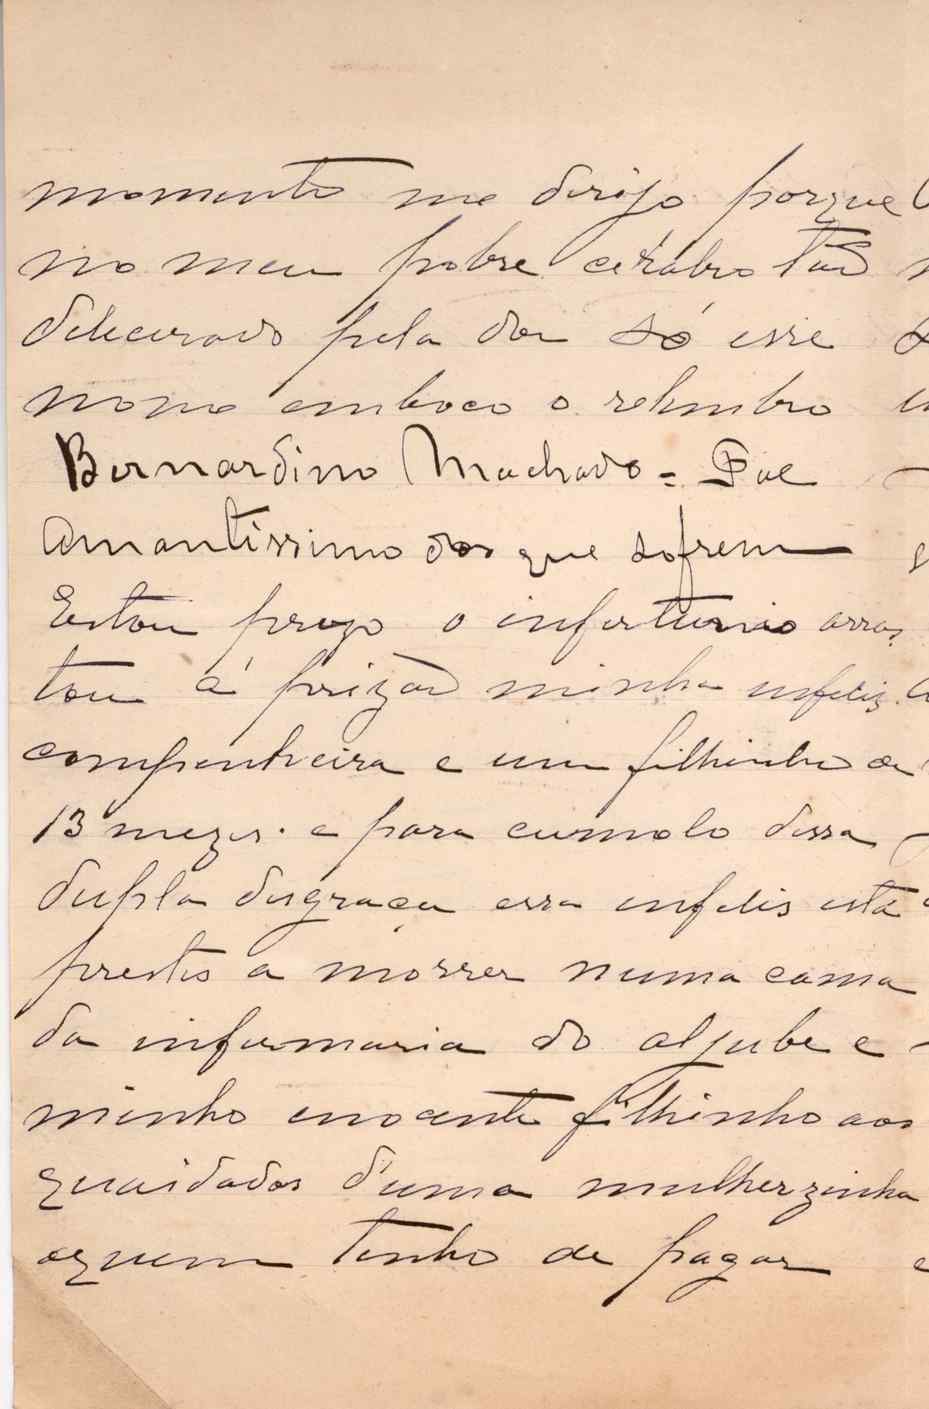 momento me dirijo porque
no meu pobre cerabro tão
delecerado pela dor só esse
nome emboco o relembro
Bernardino Machado = Pae
Amantissimo dos que sofrem
Estou prezo o infortunio arras
tou á prizão minha infeliz
companheira e um filhinho de
13 mezes. e para cumolo dessa
dupla disgraça essa infelis está
prestes a morrer numa cama
da infermaria do aljube e
minho enocente filhinho aos
quaidados d'uma mulherzinha
aquem tenho de pagar